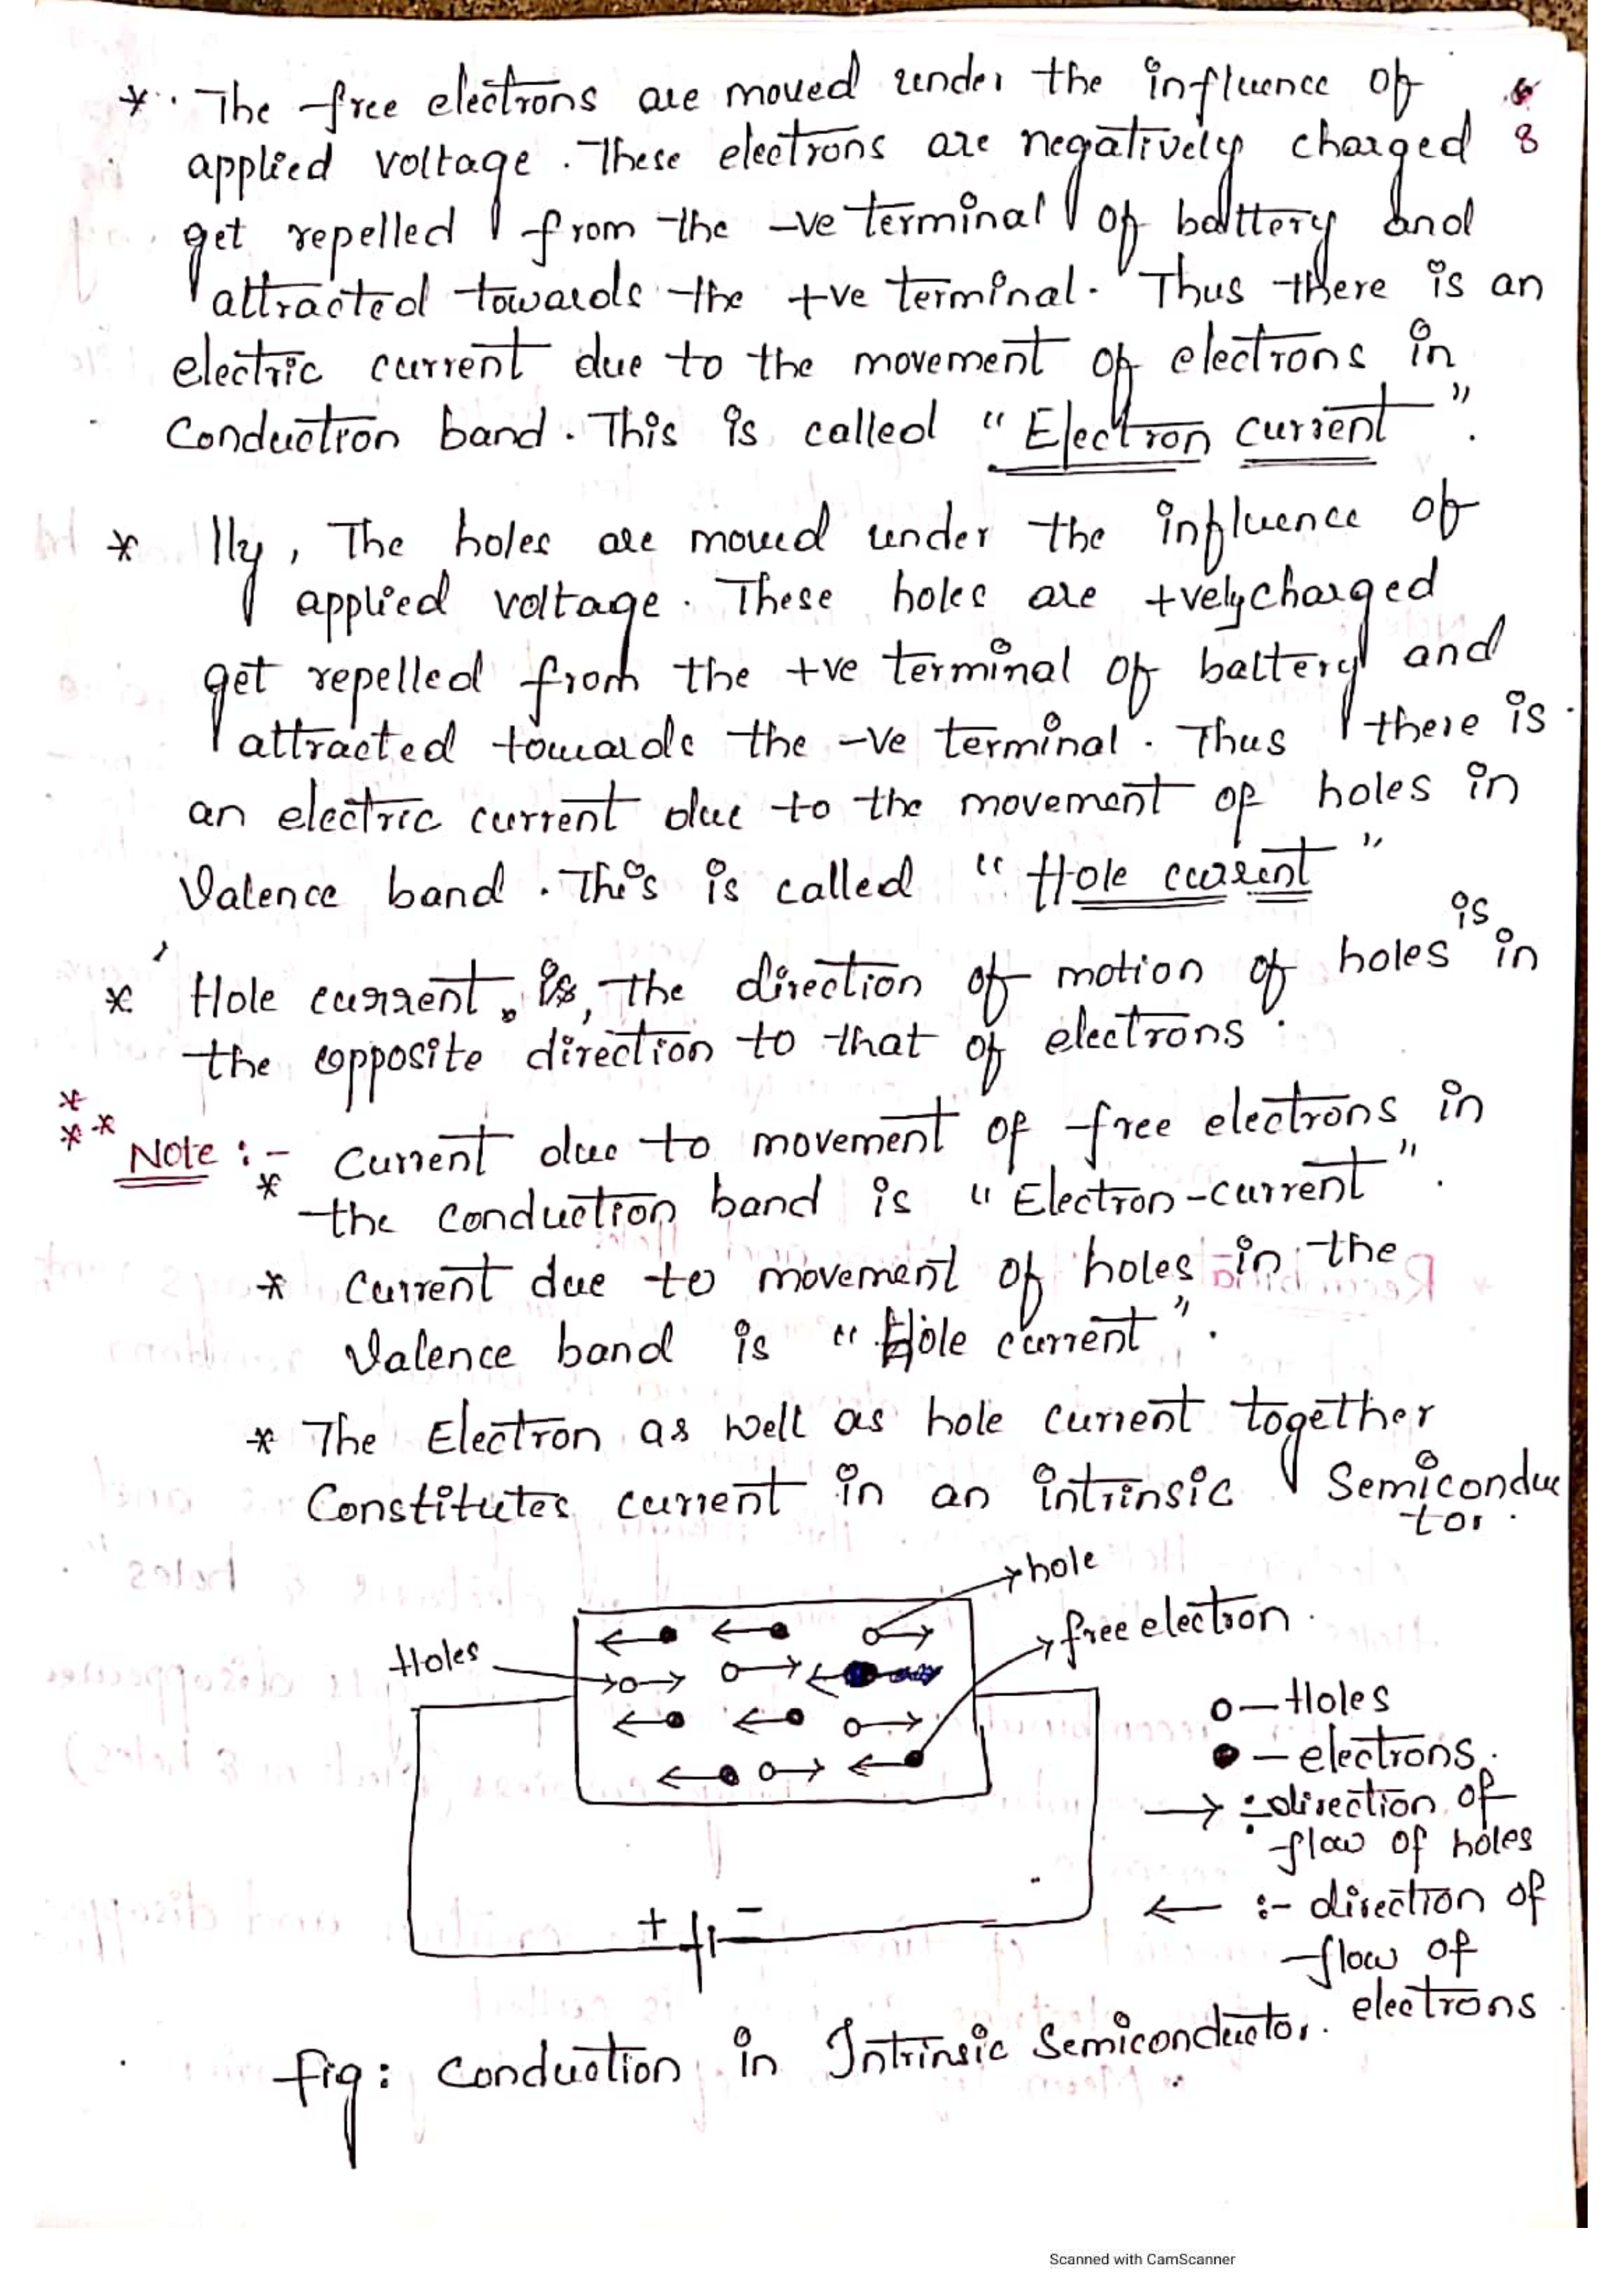 * The free electrons are moved under the influence of
8
applied voltage. These electrons are negatively charged
get repelled from the -ve terminal of battery and
attracted towards the +ve terminal. Thus there is an
electric current due to the movement of electrons in
Conduction band. This is called "Electron current".
* lly, The holes are moved under the influence of
applied voltage. These holes are +vely charged
get repelled from the +ve terminal of battery and
attracted towards the -ve terminal. Thus there is
an electric current due to the movement of holes in
Valence band. This is called "Hole current"
* Hole current, the direction of motion of holes is in
the opposite direction to that of electrons.
***
Note :- * Current due to movement of free electrons in
the conduction band is "Electron-current".
* Current due to movement of holes in the
Valence band is "Hole current".
* The Electron as well as hole current together
Constitutes current in an intrinsic Semiconduc
tor.
hole
free electron.
Holes
o - Holes
● - electrons.
→ :- direction of
flow of holes
← :- direction of
flow of
electrons
+ -
fig: Conduction in Intrinsic Semiconductor.
Scanned with CamScanner